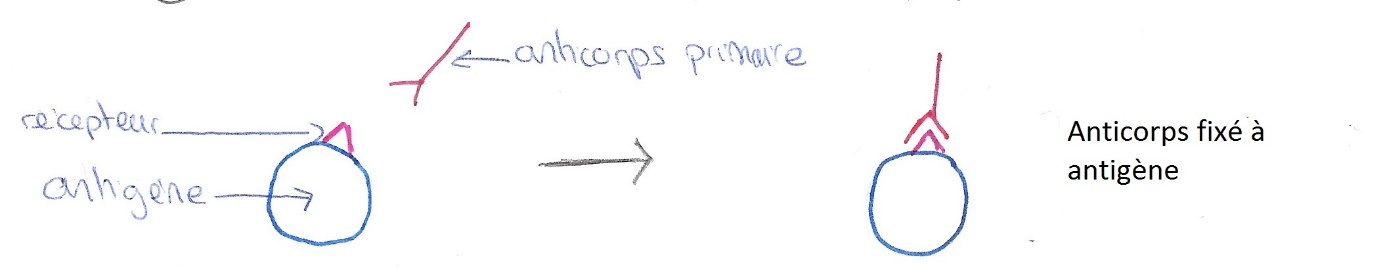 anticorps primaire
récepteur
antigène
Anticorps fixé à
antigène